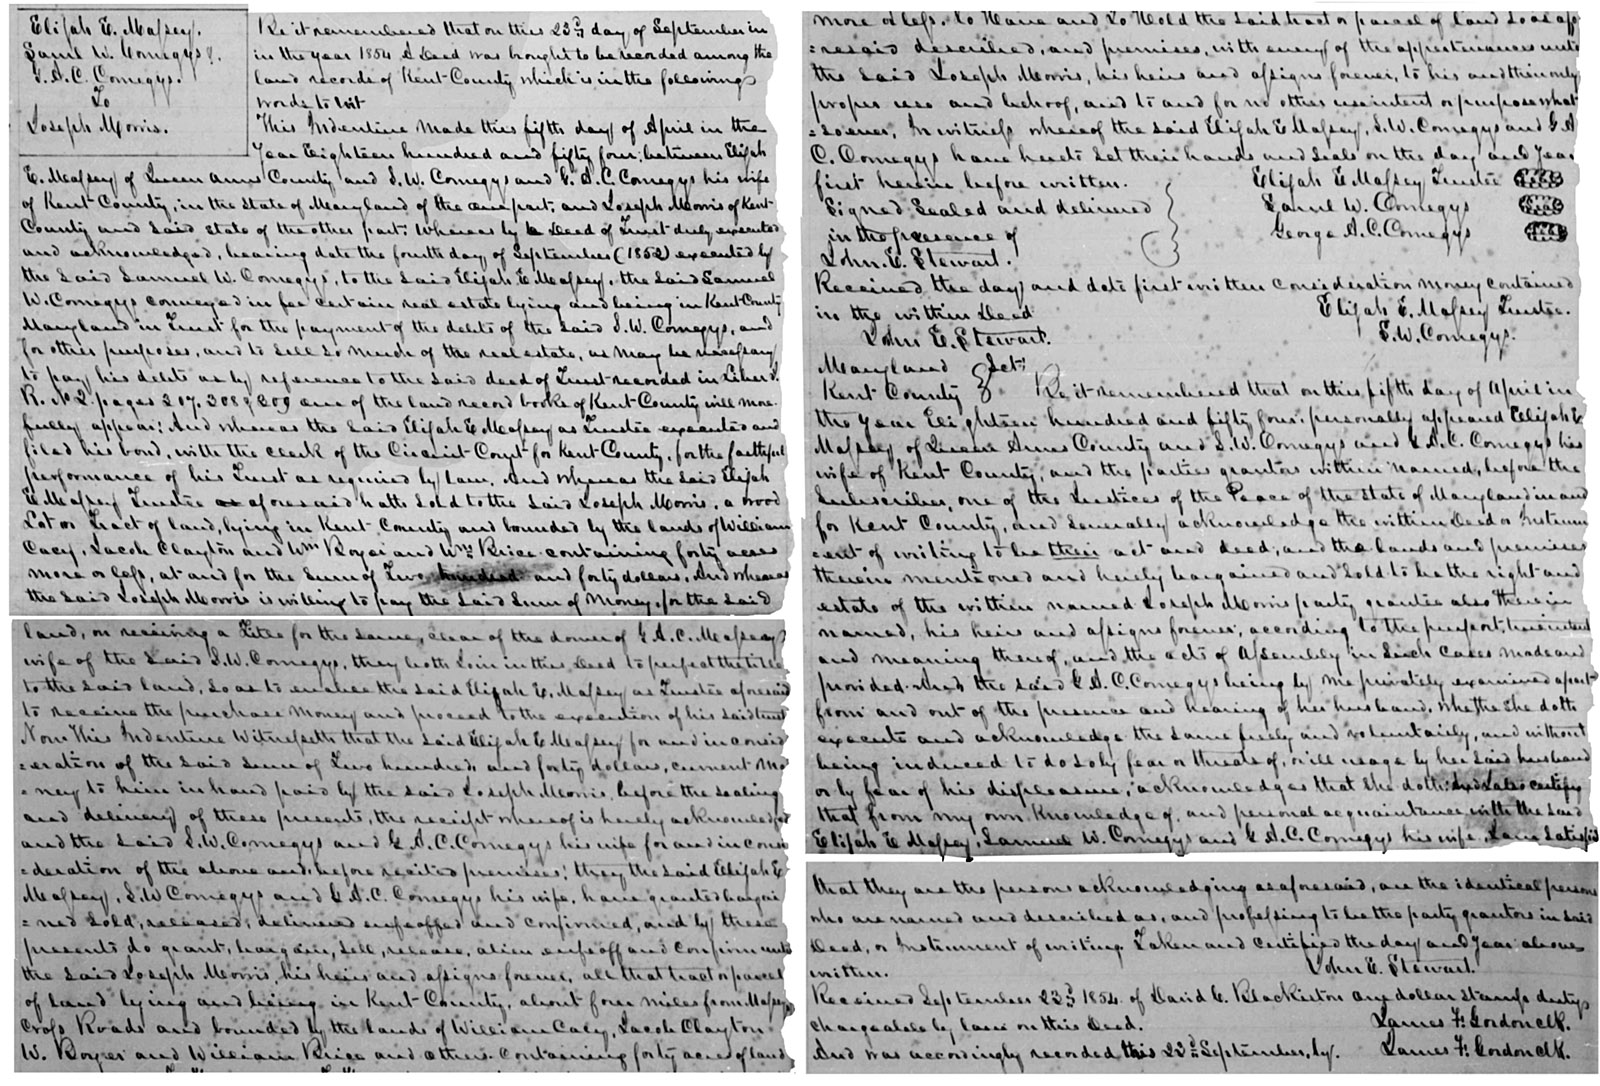 Elijah E. Massey.
Saml W. Comegys &
G. A. C. Comegys.
To
Joseph Morris.
Be it remembered that on this 23d day of September in
in the year 1854 A Deed was brought to be recorded among the
land records of Kent County which is in the following
words to wit
This Indenture Made this fifth day of April in the
Year Eighteen hundred and fifty four; between Elijah
E. Massey of Queen Anns County and S. W. Comegys and G. A. C. Comegys his wife
of Kent County, in the State of Maryland of the one part, and Joseph Morris of Kent
County and said State of the other part; Whereas by a Deed of Trust duly executed
and acknowledged, bearing date the fourth day of September (1852) executed by
the said Samuel W. Comegys, to the said Elijah E. Massey, the said Samuel
W. Comegys conveyed in fee certain real estate lying and being in Kent County
Maryland in Trust for the payment of the debts of the said S. W. Comegys, and
for other purposes, and to sell so much of the real estate, as may be necessary
to pay his debts as by reference to the said deed of Trust recorded in Liber J.
R. No 2 pages 207. 208 & 209 one of the land record books of Kent County will more
fully appear; And whereas the said Elijah E. Massey as Trustee executed and
filed his bond, with the clerk of the Circuit Court for Kent County, for the faithful
performance of his Trust as required by law. And whereas the said Elijah
E. Massey Trustee as aforesaid hath sold to the said Joseph Morris, a wood
Lot or Tract of land, lying in Kent County and bounded by the lands of William
Cacy, Jacob Clayton and Wm Boyer and Wm Price containing forty acres
more or less, at and for the sum of Two hundred and forty dollars. And whereas
the said Joseph Morris is willing to pay the said sum of money, for the said
land, on receiving a Title for the same, clear of the dower of G. A. C. Massey
wife of the said S. W. Comegys, they both join in this Deed to perfect the title
to the said land, so as to enable the said Elijah E. Massey as Trustee aforesaid
to receive the purchase money and proceed to the execution of his said trust
Now This Indenture Witnesseth that the said Elijah E Massey for and in consid
=eration of the said sum of Two hundred and forty dollars, current Mo
=ney to him in hand paid by the said Joseph Morris, before the sealing
and delivery of these presents, the receipt whereof is hereby acknowledged
and the said S. W. Comegys and G A. C. Comegys his wife for and in consi
=deration of the above and before recited premises; they the said Elijah E
Massey, S. W Comegys and G A. C. Comegys his wife, have granted bargai
=ned sold, released, delivered enfeoffed and confirmed, and by these
presents do grant, bargain, sell, release, alien enfeoff and confirm unto
the said Joseph Morris, his heirs and assigns forever, all that tract or parcel
of land lying and being in Kent County, about four miles from Masseys
Cross Roads and bounded by the lands of William Cacy, Jacob Clayton
W. Boyer and William Price and others. Containing forty acres of land
more or less. To Have and To Hold the said tract or parcel of land so as afo
=resaid described, and premises, with every of the appurtenances unto
the said Joseph Morris, his heirs and assigns forever, to his and their only
proper use and behoof, and to and for no other use intent or purpose what
=soever, In witness whereof the said Elijah E Massey, S. W. Comegys and G A
C. Comegys have hereto set their hands and seals on the day and year
first herein before written.
Elijah E Massey Trustee
Signed Sealed and delivered
Samel W. Comegys
in the presence of
George A. C. Comegys
John. E. Stewart.
Received the day and date first written consideration money contained
in the within Deed
Elijah E. Massey Trustee.
John E. Stewart.
S. W. Comegys.
Maryland Sct;
Kent County Be it remembered that on this fifth day of April in
the year Eighteen hundred and fifty four, personally appeared Elijah E
Massey of Queen Anns County and S. W. Comegys and G. A. C. Comegys his
wife of Kent County, and the parties grantors within named, before the
Subscriber, one of the Justices of the Peace of the State of Maryland in and
for Kent County, and severally acknowledge the within Deed or Instrum
=ent of writing to be their act and deed, and the lands and premises
therein mentioned and hereby bargained and sold to be the right and
estate of the within named Joseph Morris party grantee also therein
named, his heirs and assigns forever, according to the purport, true intent
and meaning thereof, and the acts of Assembly in such cases made and
provided. And the said G A. C. Comegys being by me privately examined apart
from and out of the presence and hearing of her husband, whether she doth
execute and acknowledge the same freely and voluntarily, and without
being induced to do so by fear or threats of, or ill usage by her said husband
or by fear of his displeasure, acknowledges that she doth: And I also certify
that from my own knowledge of, and personal acquaintance with the said
Elijah E Massey, Samuel W. Comegys and G A. C. Comegys his wife, I am satisfied
that they are the persons acknowledging as aforesaid, are the identical persons
who are named and described as, and professing to be the party grantors in said
Deed, or Instrument of writing. Taken and certified the day and year above
written.
John E. Stewart.
Received September 23d 1854 of David C. Blackiston one dollar stamp duty
chargeable by law on this Deed.
James F. Gordon Clk.
And was accordingly recorded this 23d September, by.
James F. Gordon Clk.